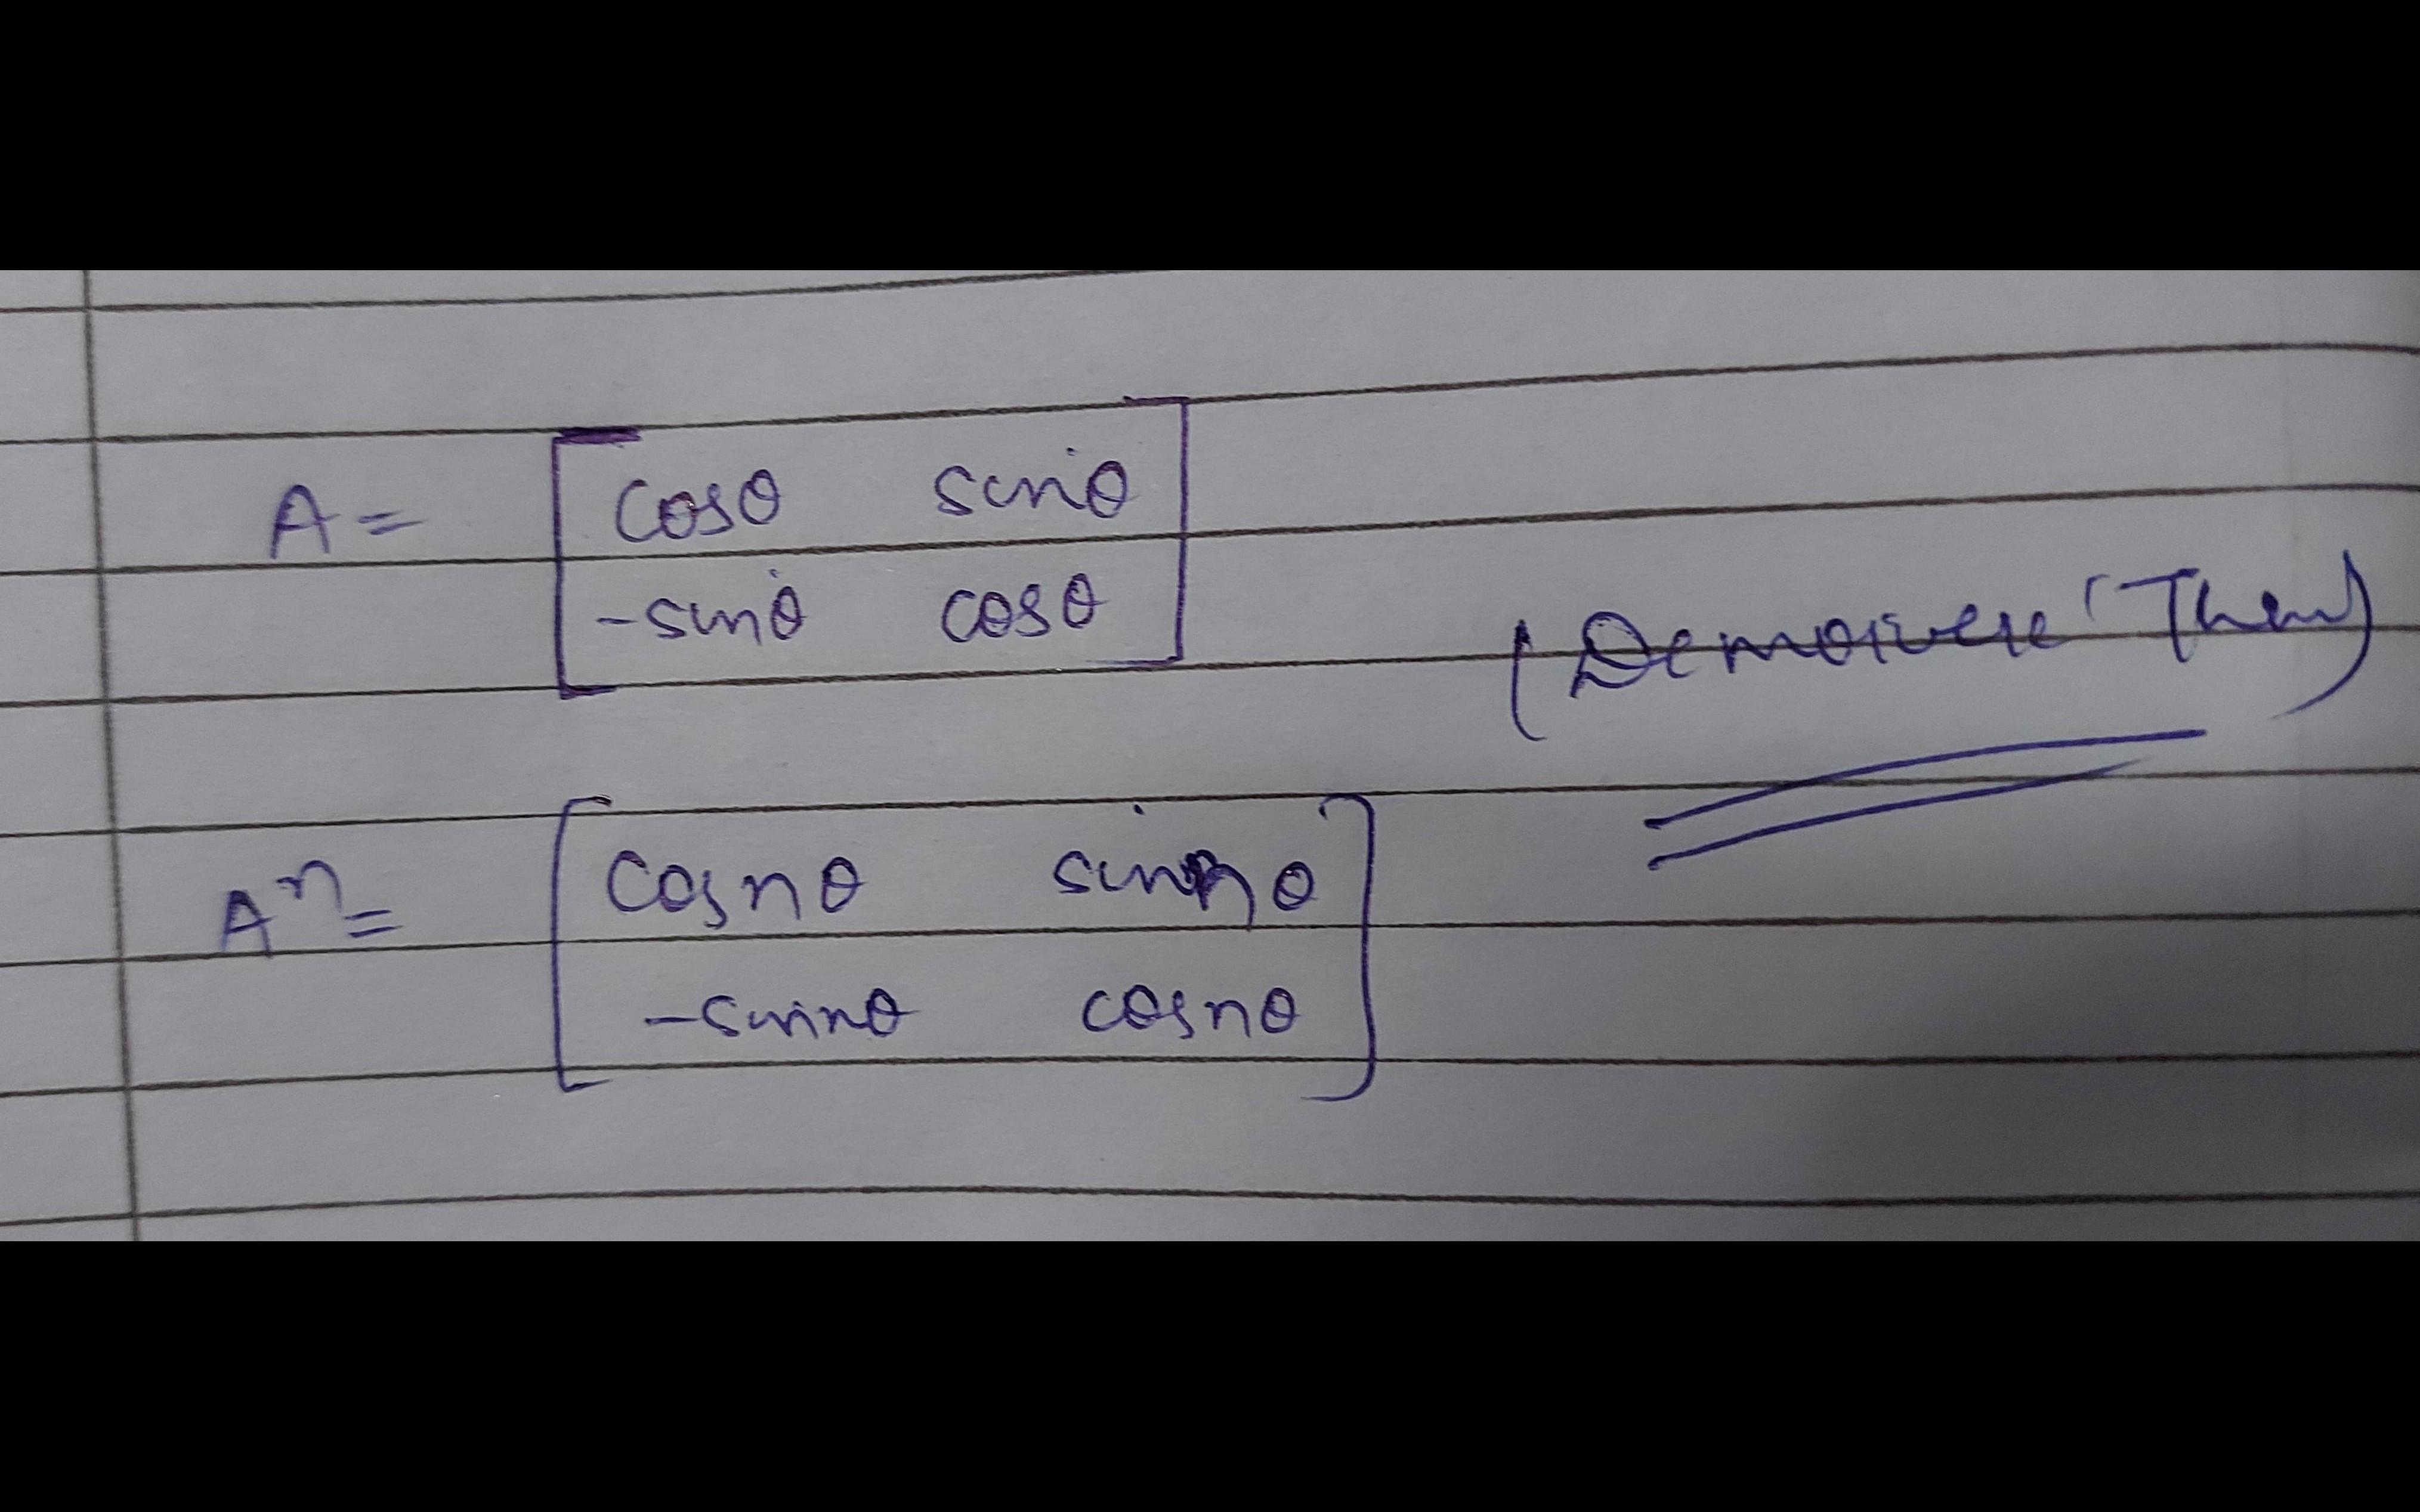 A = [ cosθ sinθ
-sinθ cosθ ]
(Demoivere' Thm)
Aⁿ = [ cosnθ sinnθ
-sinnθ cosnθ ]